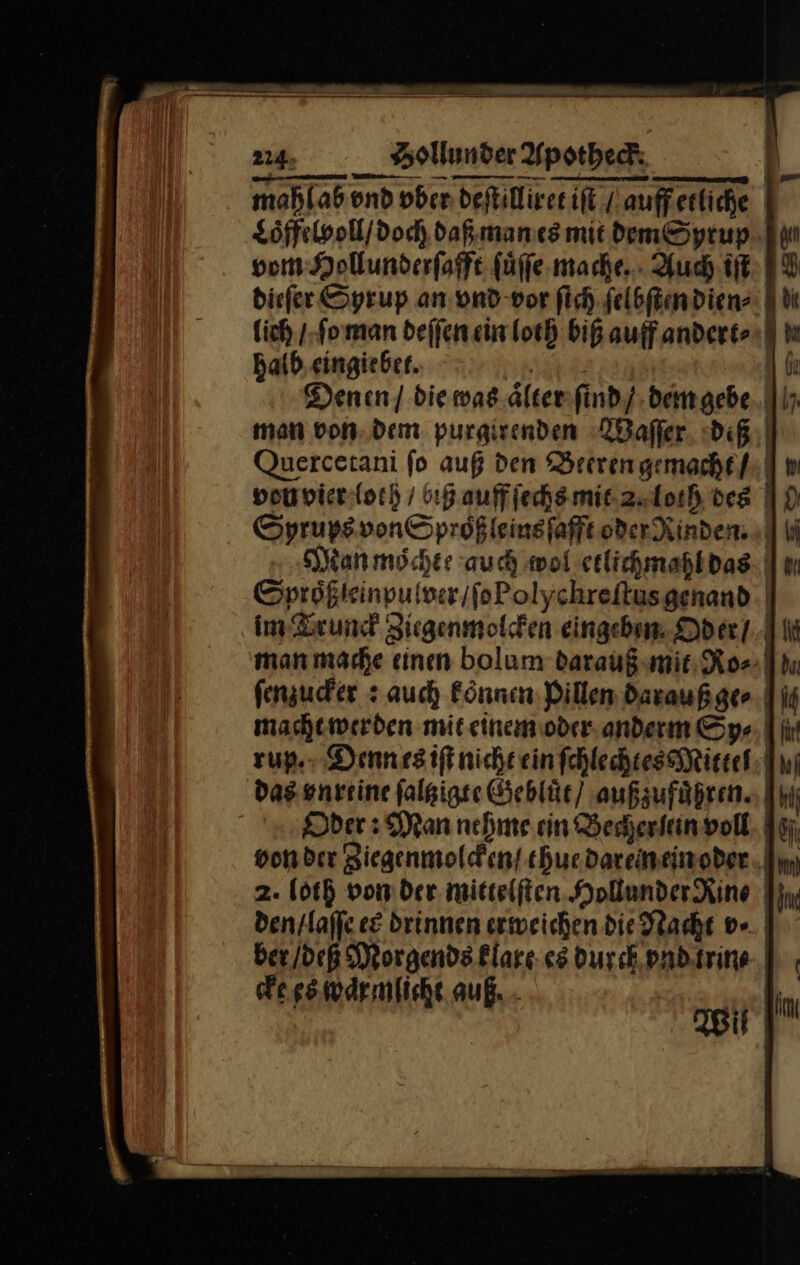 224. Hollunder Apotheck.
mahl ab vnd vber destilliret ist / auff etliche
Löffelvoll / doch daß man es mit dem Syrup
vom Hollundersafft süsse mache. Auch ist
dieser Syrup an vnd vor sich selbsten dien⸗
lich / so man dessen ein loth biß auff andert⸗
halb eingiebet.
Denen / die was älter sind / dem gebe
man von dem purgirenden Wasser deß
Quercetani so auß den Beeren gemacht /
von vier loth / biß auff sechs mit 2. loth des
Syrups von Sprößleinssafft oder Rinden.
Man möchte auch wol etlichmahl das
Sprößleinpulver / so Polychrestus genand
im Trunck Ziegenmolcken eingeben. Oder /
man mache einen bolum darauß mit Ro⸗
senzucker : auch können Pillen darauß ge⸗
macht werden mit einem oder anderm Sy⸗
rup. Denn es ist nicht ein schlechtes Mittel
das vnreine saltzigte Geblüt / außzuführen.
Oder : Man nehme ein Becherlein voll
von der Ziegenmolcken / thue darein ein oder
2. loth von der mittelsten Hollunder Rin⸗
den / lasse es drinnen erweichen die Nacht v⸗
ber / deß Morgends klare es durch vnd trin⸗
cke es wärmlicht auß.
Wil